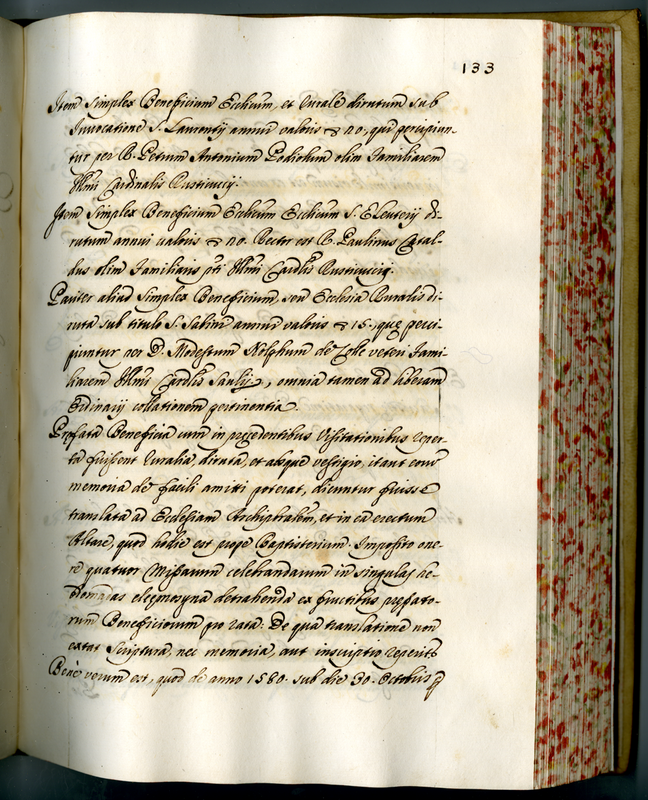 133
Item Simplex Beneficium Ecclīum, et Curale dirutum sub
Invocatione S. Laurentij annui valoris ▽ 20, qui percipiun-
tur per R. Petrum Antonium Podiolum olim Familiarem
Illm̄i Cardinalis Rusticucij.
Item Simplex Beneficium Ecclīum Ecclīum S. Eleuterij di-
rutum annui valoris ▽ 20. Rector est R. Paulinus Catal-
dus olim Familiaris p̄ti Illm̄i Cardlis Rusticucij.
Pariter aliud Simplex Beneficium, seu Ecclesia Ruralis di-
ruta sub titulo S. Sabini annui valoris ▽ 15, quę perci-
piuntur per D. Modestum de Celle veteri Fami-
liarem Illm̄i Cardlis Saulij, omnia tamen ad liberam
Ordinarij collationem pertinentia.
Pręfata Beneficia cum in pręcedentibus Visitationibus reper-
ta fuissent Curalia, diruta, et absque vestigio, ita ut eorū
memoria de facili amitti poterat, dicuntur fuisse
translata ad Ecclesiam Archipṙalem, et in ea erectum
Altare, quod hodie est prope Baptisterium Imposito one-
re quatuor Missarum celebrandarum in singulis he-
bdomadas eleęmosyna detrahenda ex fructibus pręfato-
rum Beneficiorum pro rata: De qua translatione non
extat Scriptura, nec memoria, aut inscriptio reperitr
Bene verum est, quod de anno 1580. sub die 30. Octobris p̄